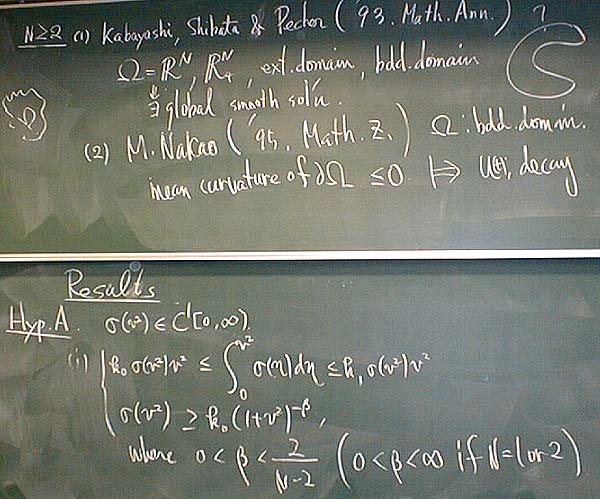 N≥2 (1) Kabayashi, Shibata & Pecher ('93. Math. Ann.) ?
Ω = ℝᴺ, ℝ₊ᴺ, ext. domain, bdd. domain
⇓
∃ global smooth sol'n.
Ω
(2) M. Nakao ('95, Math. Z.) Ω : bdd. domain.
mean curvature of ∂Ω ≤ 0 ⊨> u(t), decay
Results
Hyp.A. σ(v²) ∈ C¹[0,∞).
(i) { k₀ σ(v²)v² ≤ ∫₀^{v²} σ(η)dη ≤ k₁ σ(v²)v²
σ(v²) ≥ k₀ (1+v²)^{-β},
where 0 < β < 2/(N-2) (0<β<∞ if N=1 or 2)